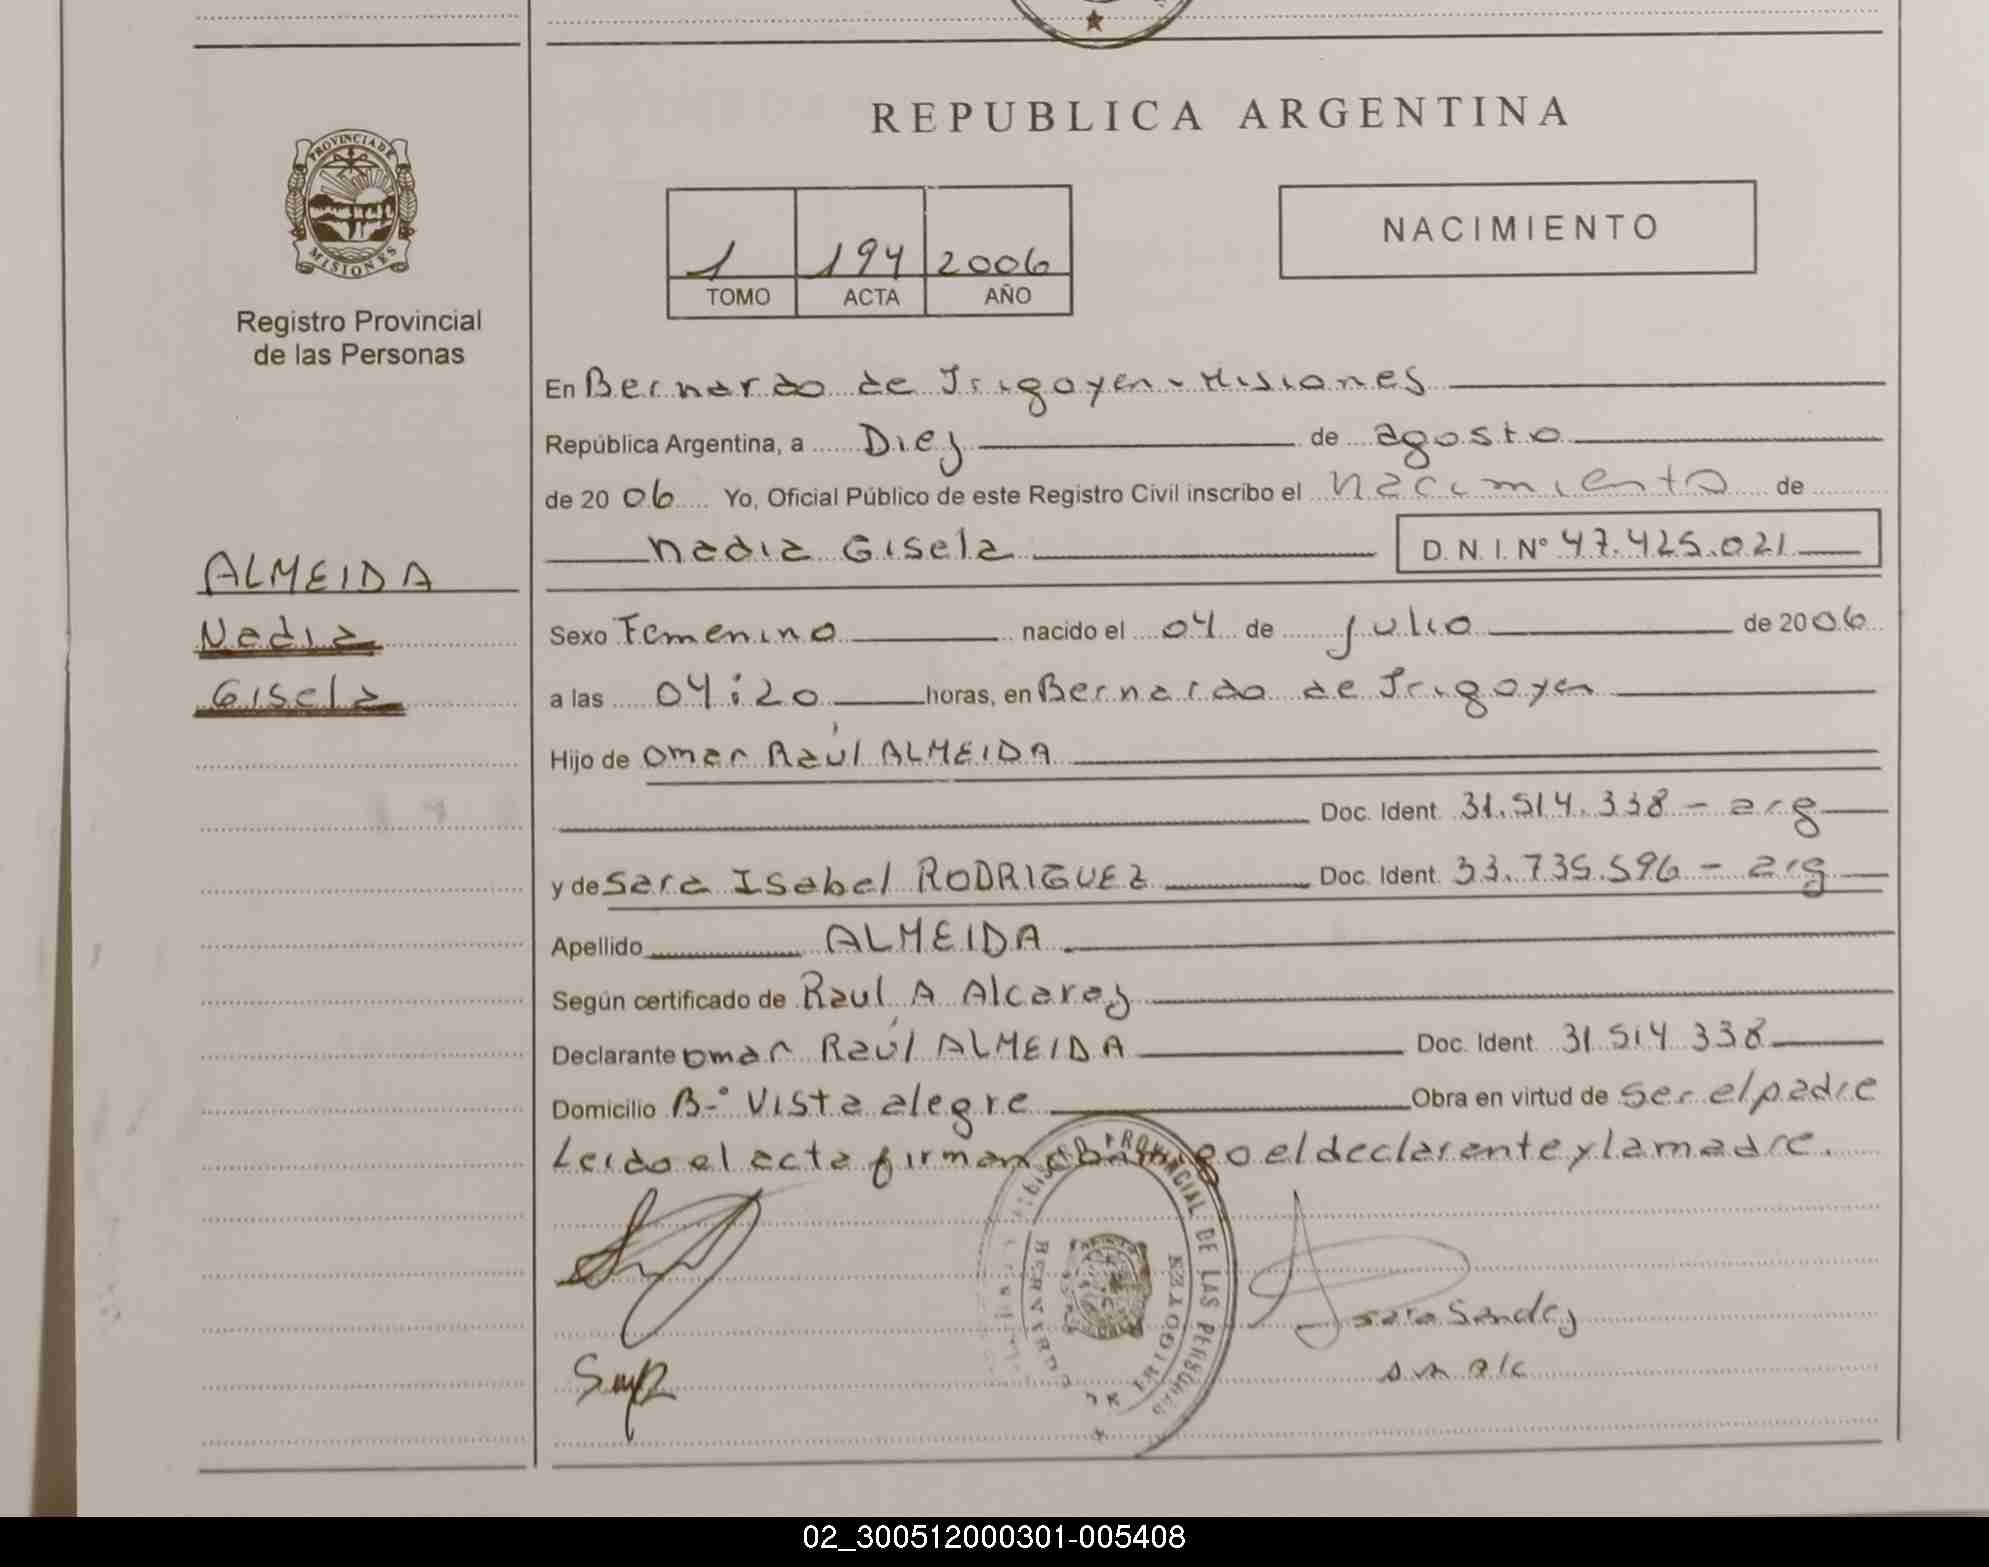 REPUBLICA ARGENTINA
PROVINCIA DE MISIONES
Registro Provincial
de las Personas
1 194 2006
TOMO ACTA AÑO
NACIMIENTO
En Bernardo de Irigoyen - Misiones
República Argentina, a Diez de agosto
de 2006 Yo, Oficial Público de este Registro Civil inscribo el nacimiento de
Nadia Gisela D. N. I. Nº 47.425.021
ALMEIDA
Nadia
Gisela
Sexo Femenino nacido el 04 de julio de 2006
a las 04:20 horas, en Bernardo de Irigoyen
Hijo de Omar Raúl ALMEIDA
Doc. Ident. 31.514.338 - arg
y de Sara Isabel RODRIGUEZ Doc. Ident. 33.735.596 - arg
Apellido ALMEIDA
Según certificado de Raul A Alcaraz
Declarante Omar Raúl ALMEIDA Doc. Ident. 31 514 338
Domicilio B-º Vista alegre Obra en virtud de Ser el padre
Leido el acta firman el declarante y la madre.
REGISTRO PROVINCIAL DE LAS PERSONAS
BERNARDO DE IRIGOYEN
02_300512000301-005408